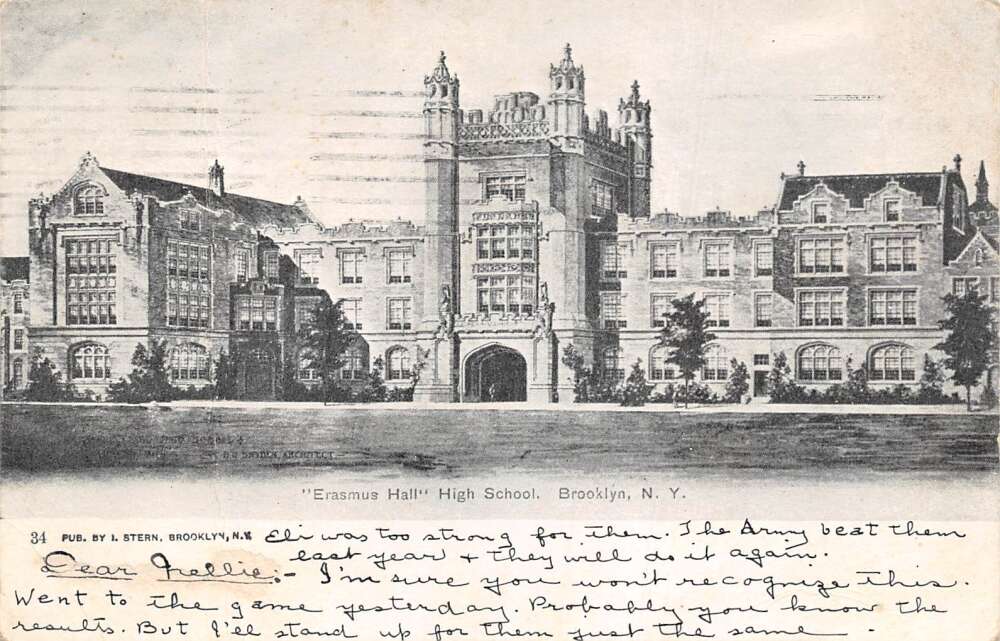 C B J SNYDER ARCHITECT
"Erasmus Hall" High School. Brooklyn, N. Y.
34 PUB. BY I. STERN, BROOKLYN, N.Y. Eli was too strong for them. The Army beat them
last year & they will do it again.
Dear Nellie:- I'm sure you won't recognize this.
Went to the game yesterday. Probably you know the
results. But I'll stand up for them just the same —